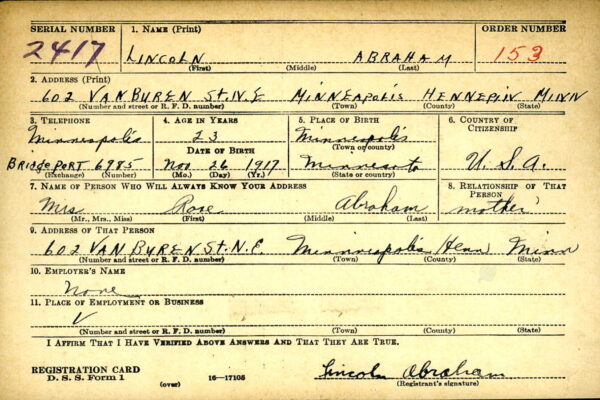 SERIAL NUMBER 1. NAME (Print) ORDER NUMBER
2417 LINCOLN ABRAHAM 153
(First) (Middle) (Last)
2. ADDRESS (Print)
602 VAN BUREN ST. N.E MINNEAPOLIS HENNEPIN MINN
(Number and street or R. F. D. number) (Town) (County) (State)
3. TELEPHONE 4. AGE IN YEARS 5. PLACE OF BIRTH 6. COUNTRY OF
Minneapolis 23 Minneapolis CITIZENSHIP
DATE OF BIRTH (Town or county)
BRIDGEPORT 6985 Nov. 26 1917 Minnesota U.S.A.
(Exchange) (Number) (Mo.) (Day) (Yr.) (State or country)
7. NAME OF PERSON WHO WILL ALWAYS KNOW YOUR ADDRESS 8. RELATIONSHIP OF THAT
PERSON
Mrs Rose Abraham mother
(Mr., Mrs., Miss) (First) (Middle) (Last)
9. ADDRESS OF THAT PERSON
602 VAN BUREN ST. N.E. Minneapolis Henn Minn
(Number and street or R. F. D. number) (Town) (County) (State)
10. EMPLOYER'S NAME
None
11. PLACE OF EMPLOYMENT OR BUSINESS
(Number and street or R. F. D. number) (Town) (County) (State)
I AFFIRM THAT I HAVE VERIFIED ABOVE ANSWERS AND THAT THEY ARE TRUE.
REGISTRATION CARD
D. S. S. Form 1 (over) 16—17105 Lincoln Abraham
(Registrant's signature)